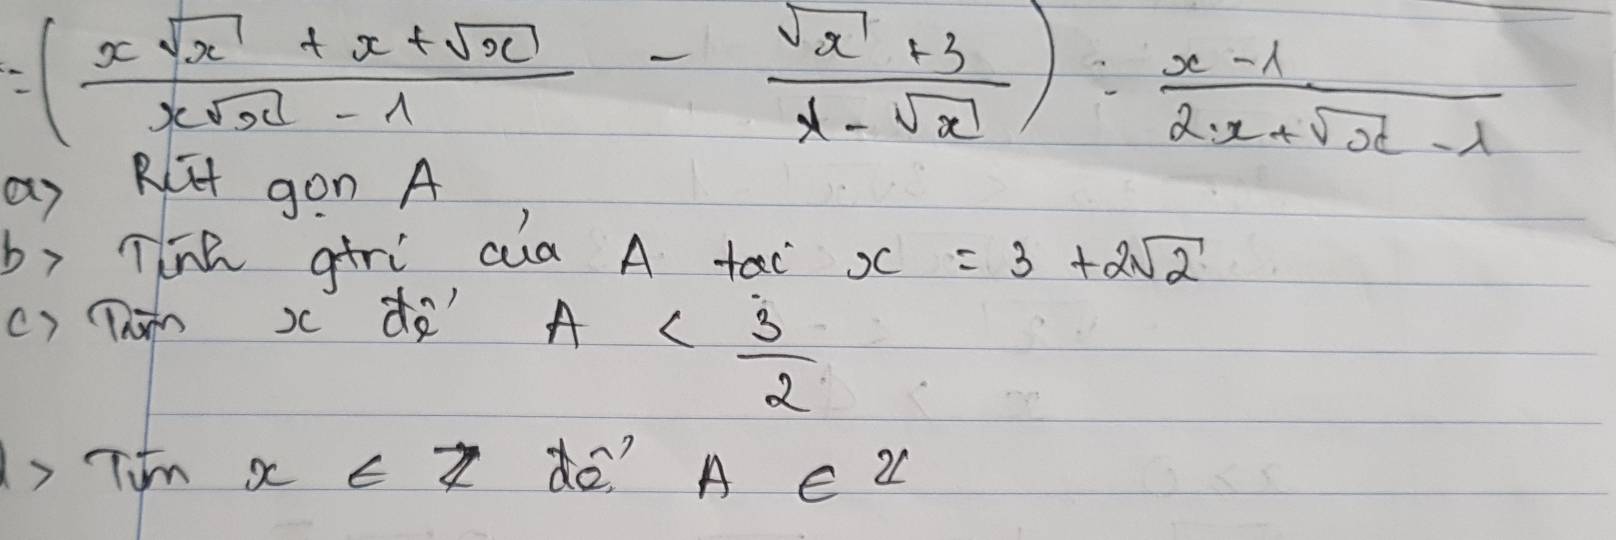 = ( (x√x + x + √x) / (x√x - 1) - (√x + 3) / (1 - √x) ) : (x - 1) / (2.x + √x - 1)
a> Rút gọn A
b> Tính gtrí của A tại x = 3 + 2√2
c> Tìm x để A < 3/2
d> Tìm x ∈ Z để A ∈ Z